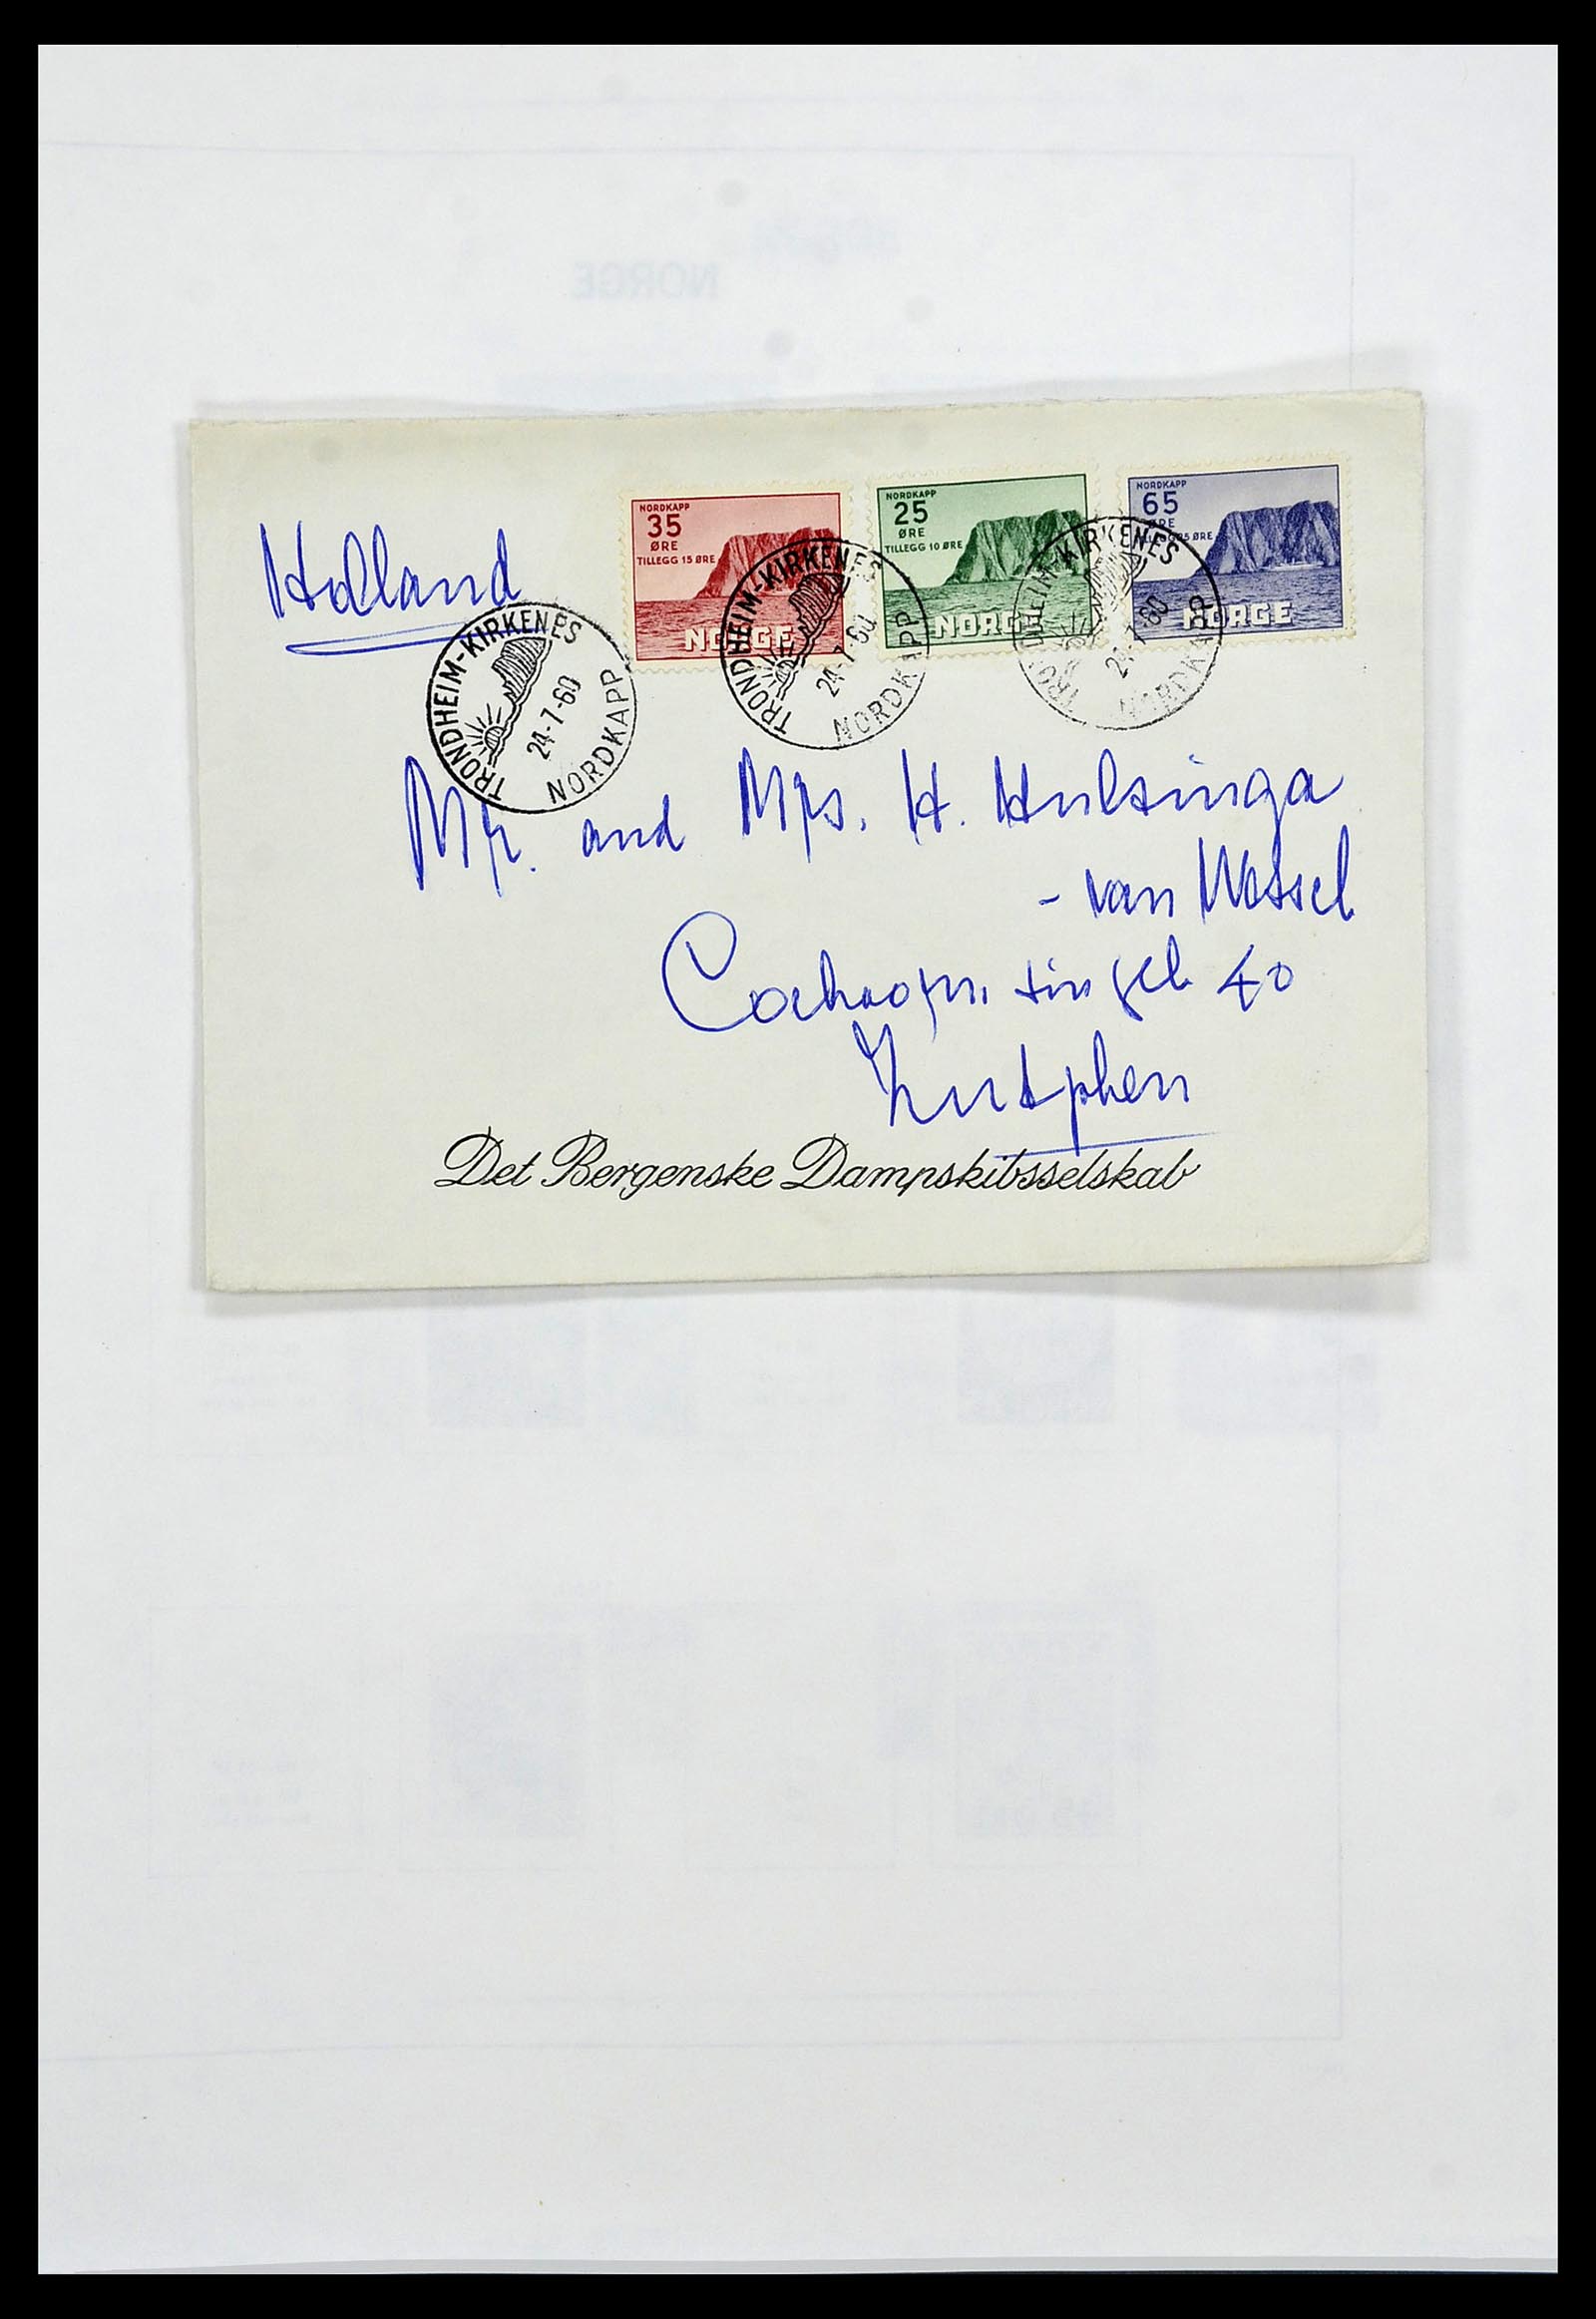 NORGE
NORDKAPP
35
ØRE
TILLEGG 15 ØRE
NORGE
NORDKAPP
25
ØRE
TILLEGG 10 ØRE
NORGE
NORDKAPP
65
ØRE
NORGE
Holland
TRONDHEIM-KIRKENES
24-7-60
NORDKAPP
TRONDHEIM-KIRKENES
24-7-60
NORDKAPP
TRONDHEIM-KIRKENES
24-7-60
NORDKAPP
Mr. and Mrs. H. Hulsinga
- van Wessel
40
Zutphen
Det Bergenske Dampskibsselskab